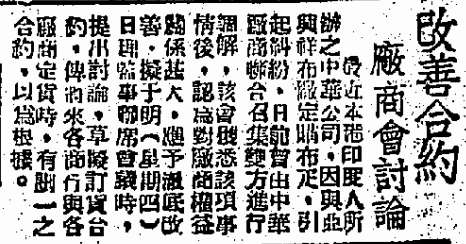 改善合約
廠商會討論
最近本港印度人所
辦之中華公司，因與亞
興祥布廠定購布疋，引
起糾紛，日前曾由中華
廠商聯合召集雙方進行
調解，該會獲悉該項事
情後，認為對廠商權益
關係甚大，應予澈底改
善，擬于明（星期四）
日理監事聯席會議時，
提出討論，草擬訂貨合
約，俾將來各商行與各
廠商定貨時，有劃一之
合約，以為根據。